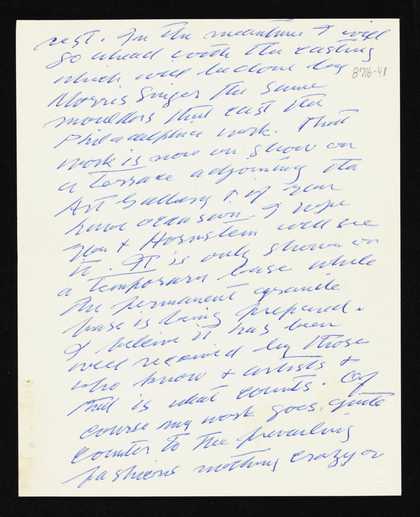 rest. In the meantime I will
go ahead with the casting
which will be done by
8716-41
Morris Singer the same
moulders that cast the
Philadelphia work. That
work is now on show on
a terrace adjoining the
Art Gallery & if you
have occasion I hope
you & Hornstein will see
it. It is only shown on
a temporary base while
the permanent granite
base is being prepared.
I believe it has been
well received by those
who know & artists &
that is what counts. Of
course my work goes quite
counter to the prevailing
fashions nothing crazy or